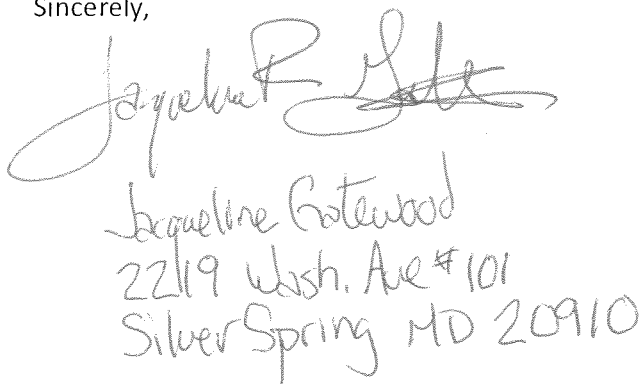 Sincerely,
Jacqueline R
Jacqueline Gatewood
2219 Wash. Ave #101
Silver Spring MD 20910